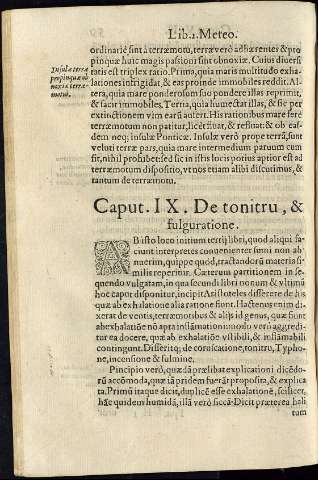 Lib.2. Meteo.
ordinariè sint à terræmotu, terræ verò adhærentes & pro
pinquæ huic magis passioni sint obnoxiæ. Cuius diversi
Insulæ terræ
propinquæ ob
noxiæ terræ-
motui.
tatis est triplex ratio. Prima, quia maris multitudo exha
lationes infringit, & eas proinde immobiles reddit. Al-
tera, quia mare ponderosum suo pondere illas reprimit,
& facit immobiles, Tertia, quia humectat illas, & sic per
extinctionem vim earū aufert. His rationibus mare fere
terræmotum non patitur, licet fluat, & refluat: & ob eas-
dem neq; insulæ Ponticæ. Insulæ verò prope terrā, sunt
veluti terræ pars, quia mare intermedium paruum cum
sit, nihil prohibet: sed sic in istis locis potius aptior est ad
terræmotum dispositio, vt nos etiam alibi discutimus, &
tantum de terræmotu.
Caput. IX. De tonitru, &
fulguratione.
AB isto loco initium tertij libri, quod aliqui fa
ciunt interpretes convenienter sumi non ab
nuerim, quippe quòd, tractandorū materia si-
milis reperitur. Cæterum partitionem in se-
quendo vulgatam, in qua secundi libri nonum & vltimū
hoc caput disponitur, incipit Aristoteles disserere de his
quæ ab exhalatione alia ratione fiunt. Hactenus enim di-
xerat de ventis, terræmotibus & alijs id genus, quæ fiunt
ab exhalatiōe nō apta inflāmationi: modo verò aggredi-
tur ea docere, quæ ab exhalatiōe vstibili, & inflāmabili
contingunt. Disserit q; de coruscatione, tonitru, Typho-
ne, incensione & fulmine.
Principio verò, quædā præsibat explicationi dicēdo-
rū accōmoda, quæ iā pridem fuerāt proposita, & explica
ta. Primū itaque dicit, duplicē esse exhalationē, scilicet,
hāc quidem humidā, illā verò siccā. Dicit præterea hali
tum